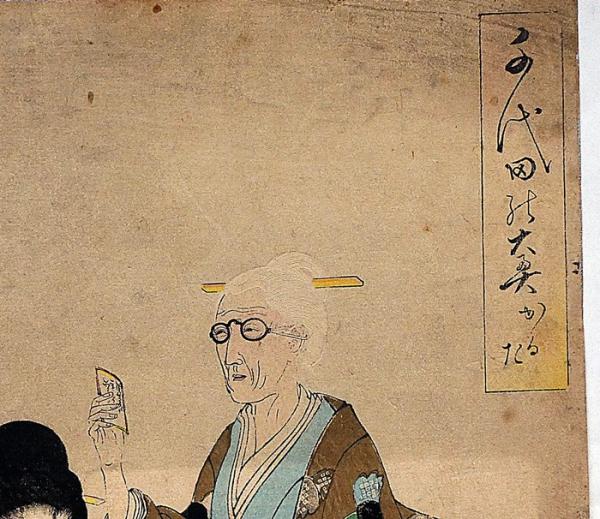 千代田の大奥 かるた